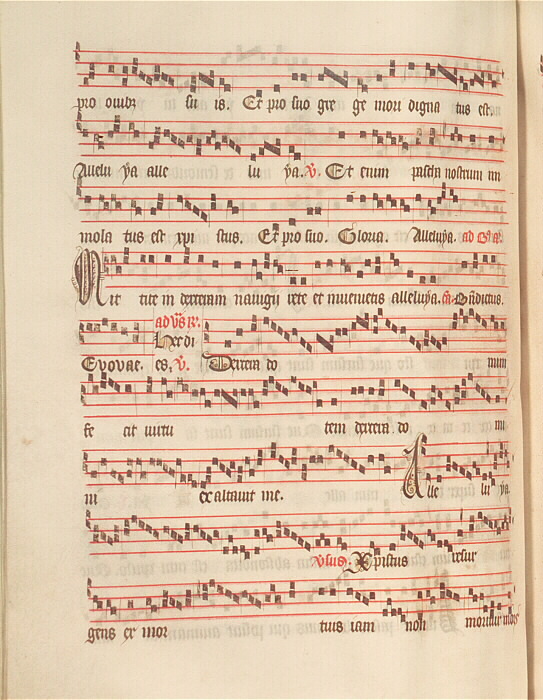 pro ovibꝫ su is. Et pro suo gre ge mori digna tus est
Allelu ya alle lu ya. V. Et enim pascha nostrum im
mola tus est xpi stus. Et pro suo. Gloria. Alleluya. ad
Mit tite in dexteram navigij rete et invenietis alleluya. Bn̄dictus.
ad Hec di
Evovae. es, V. Dextera do mini
fe cit virtu tem dextera do mi
ni exaltavit me. Alle lu ya
Vsus. Xpistus resur
gens ex mor tuis iam non moritur mors